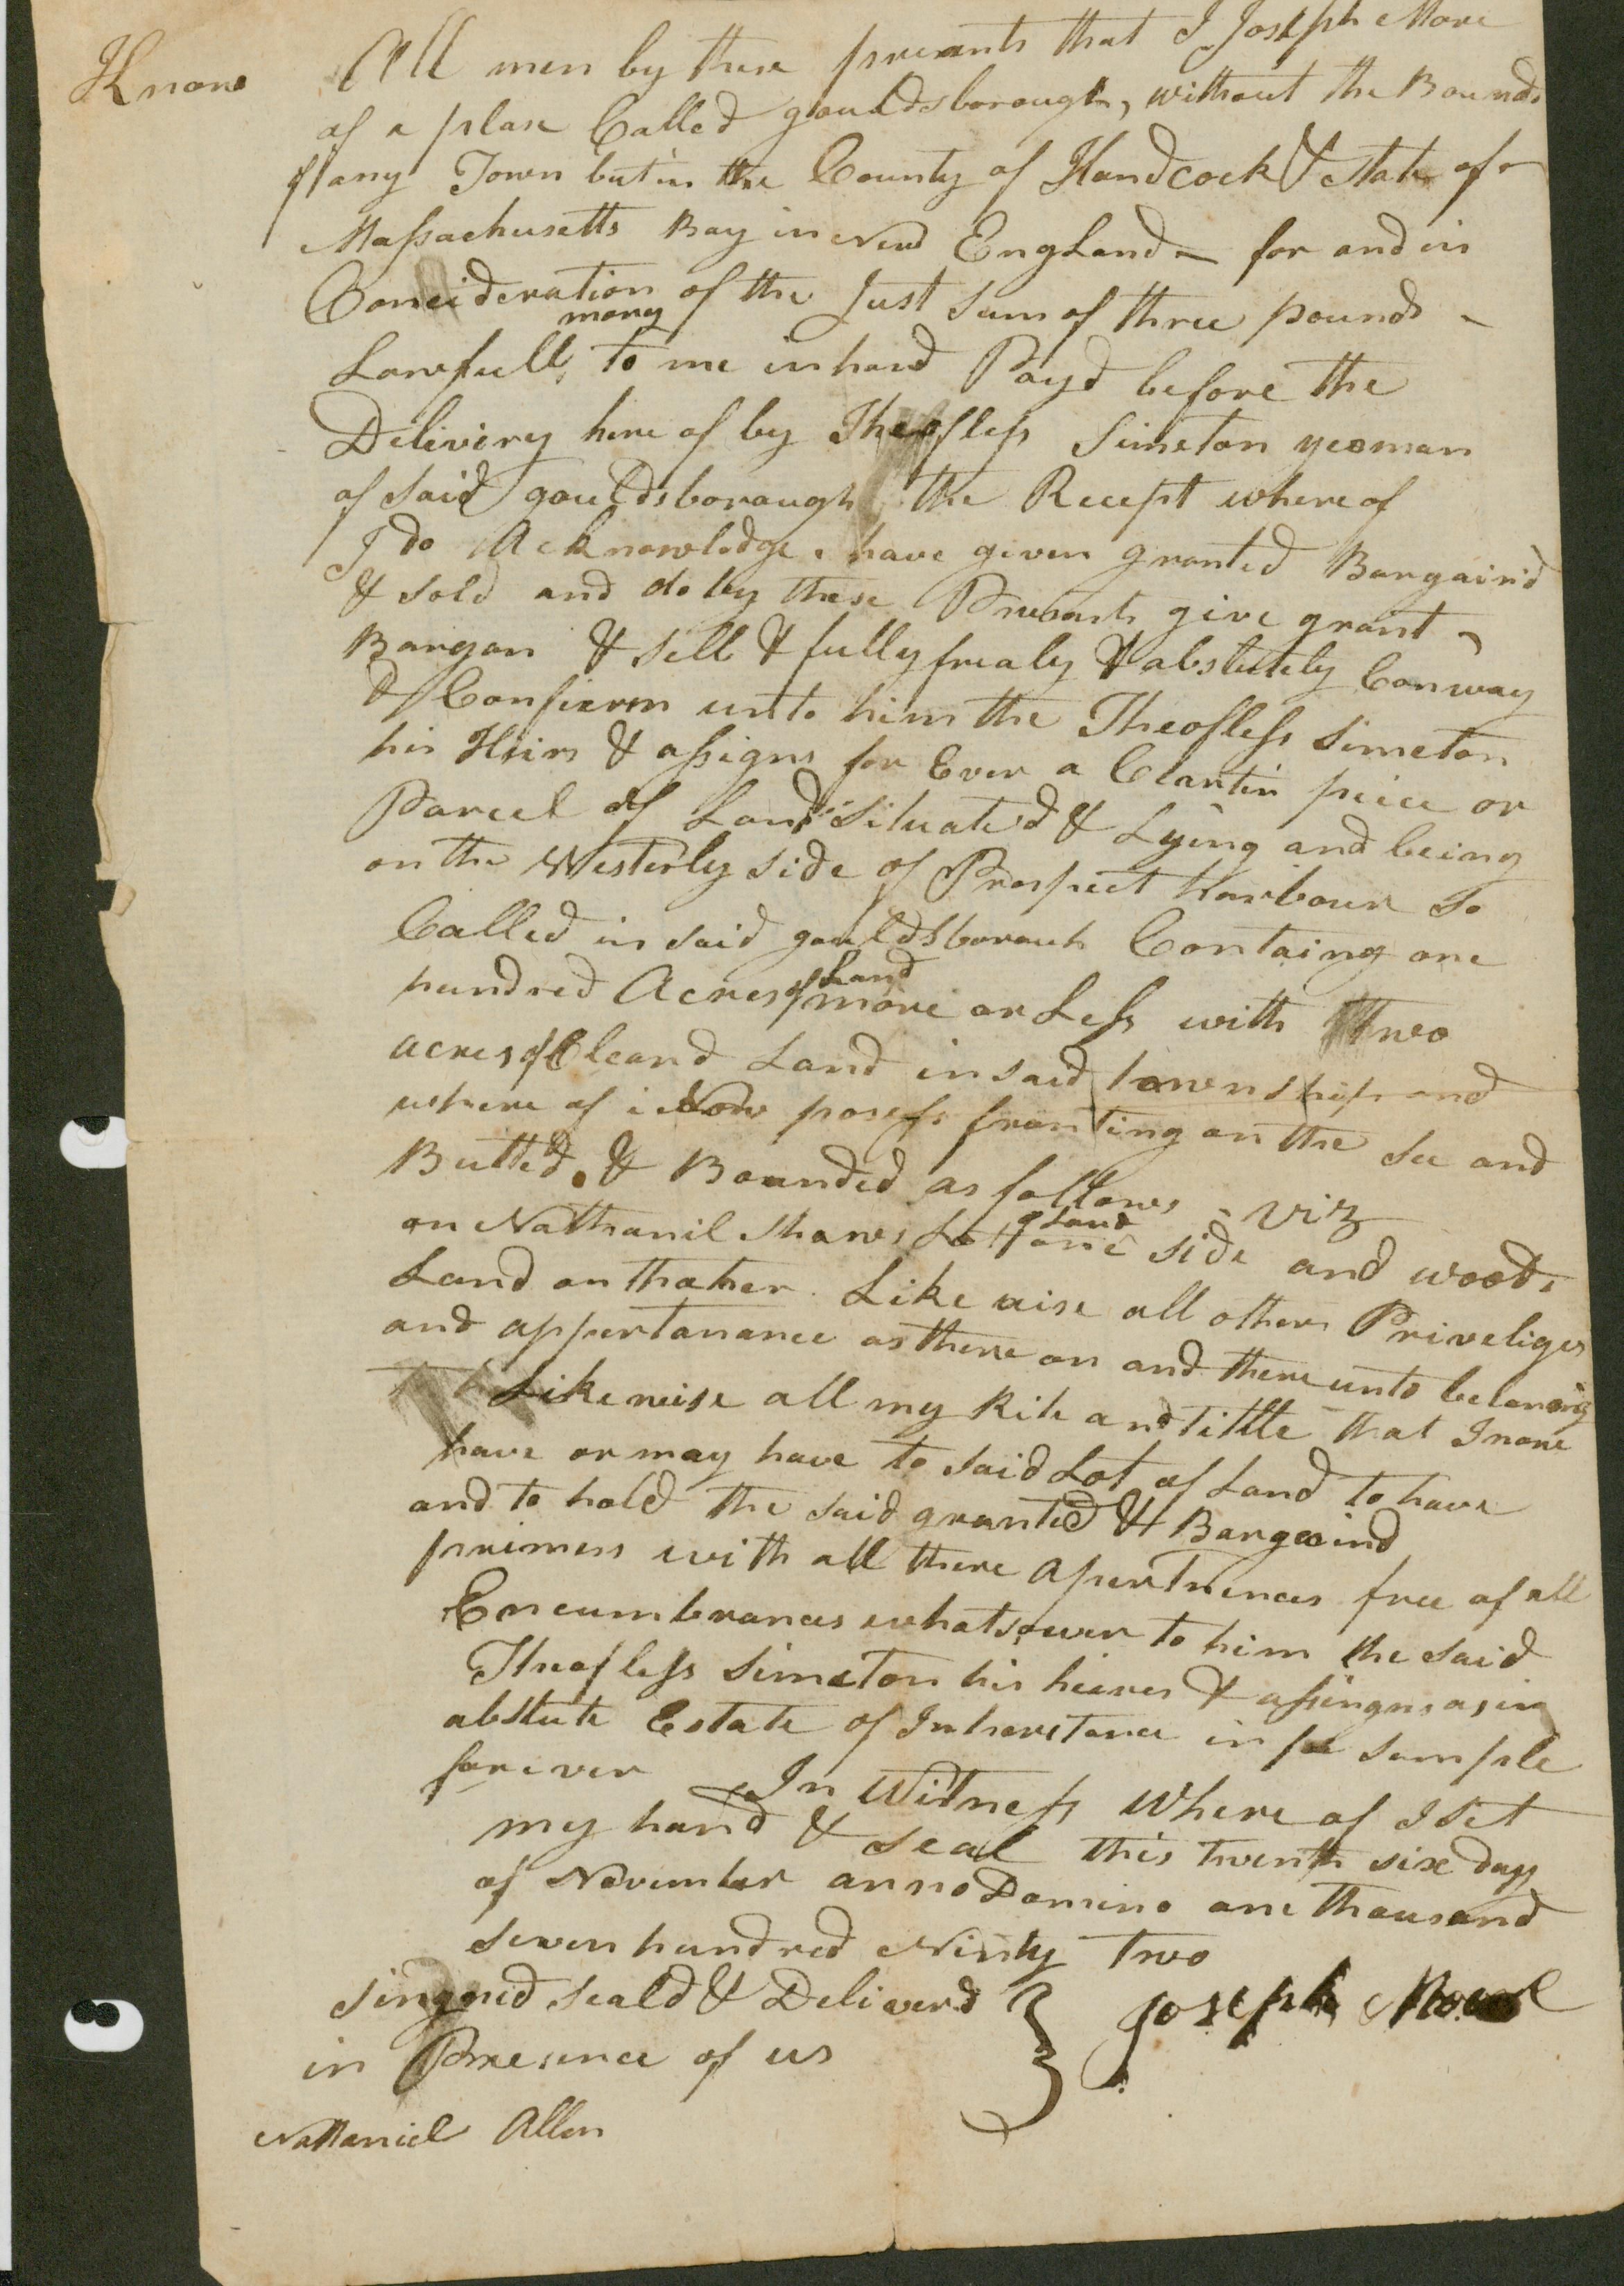 Know All men by these presants that I Joseph More
of a plase Called gouldsborough, without the Bounds
of any Town but in the County of Handcock & State of
Massachusetts Bay in New England – for and in
Concideration of the Just sum of three pounds –
Lawfull mony to me in hand Payd before the
Delivery here of by Theofless Simeton yeoman
of said gouldsborough the Recept where of
I do Acknowledge have given granted Bargain'd
& sold and do by these Presants give grant –
Bargan & sell & fully frealy & abslutely Conway
& Confierm unto him the Theofless Simeton
his Heirs & assigns for Ever a Clartin peice or
Parcel of Land Situated & Lying and being
on the Westerly side of Prospect harbour so
Called in said gouldsborouh Containg one
hundred Acres of Land more or Less with two
acres of Cleard Land in said township and
where of i Now posess fronting on the See and
Butted & Bounded as follows – Viz
on Nathanil Shaws Lot of Land one side and woods
Land on thother Like wise all others Priveliges
and appurtanance as there on and there unto belonig
Likewise all my Rite and tittle that I now
have or may have to said Lot of Land to have
and to hold the said granted & Bargaind
primess with all there apertnences free of all
Encumbrances whatsower to him the said
Theofless Simeton his heires & assingns as in
abslute Estate of Inheretance in fee sumple
forever In Witness Where of I Set
my hand & seal this twenth six day
of November anno Domino one thousand
seven hundred Ninty two
singned seald & Deliverd } Joseph More
in Presence of us
Nathaniel Allen